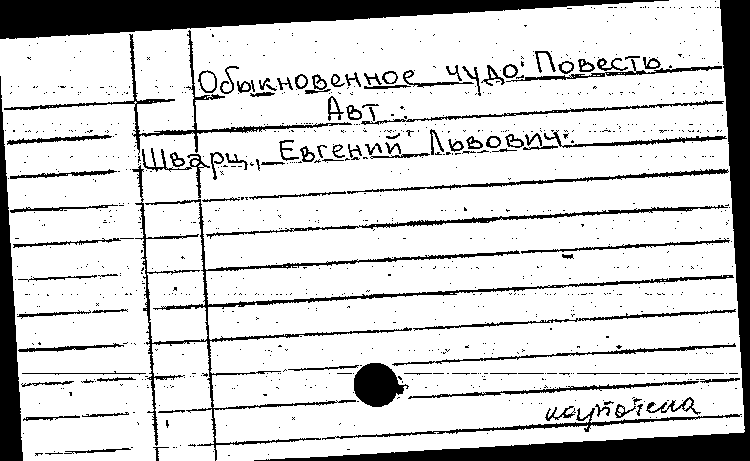 Обыкновенное чудо: Повесть.
Авт.:
Шварц, Евгений Львович.
картотека